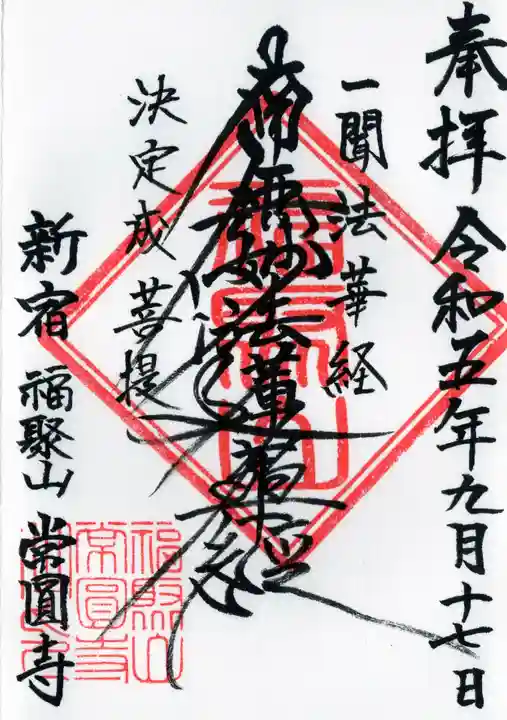 奉拝 令和五年九月十七日
一聞法華経
南無妙法蓮華経
決定成菩提
新宿 福聚山 常圓寺
福聚山
福聚山
常圓寺